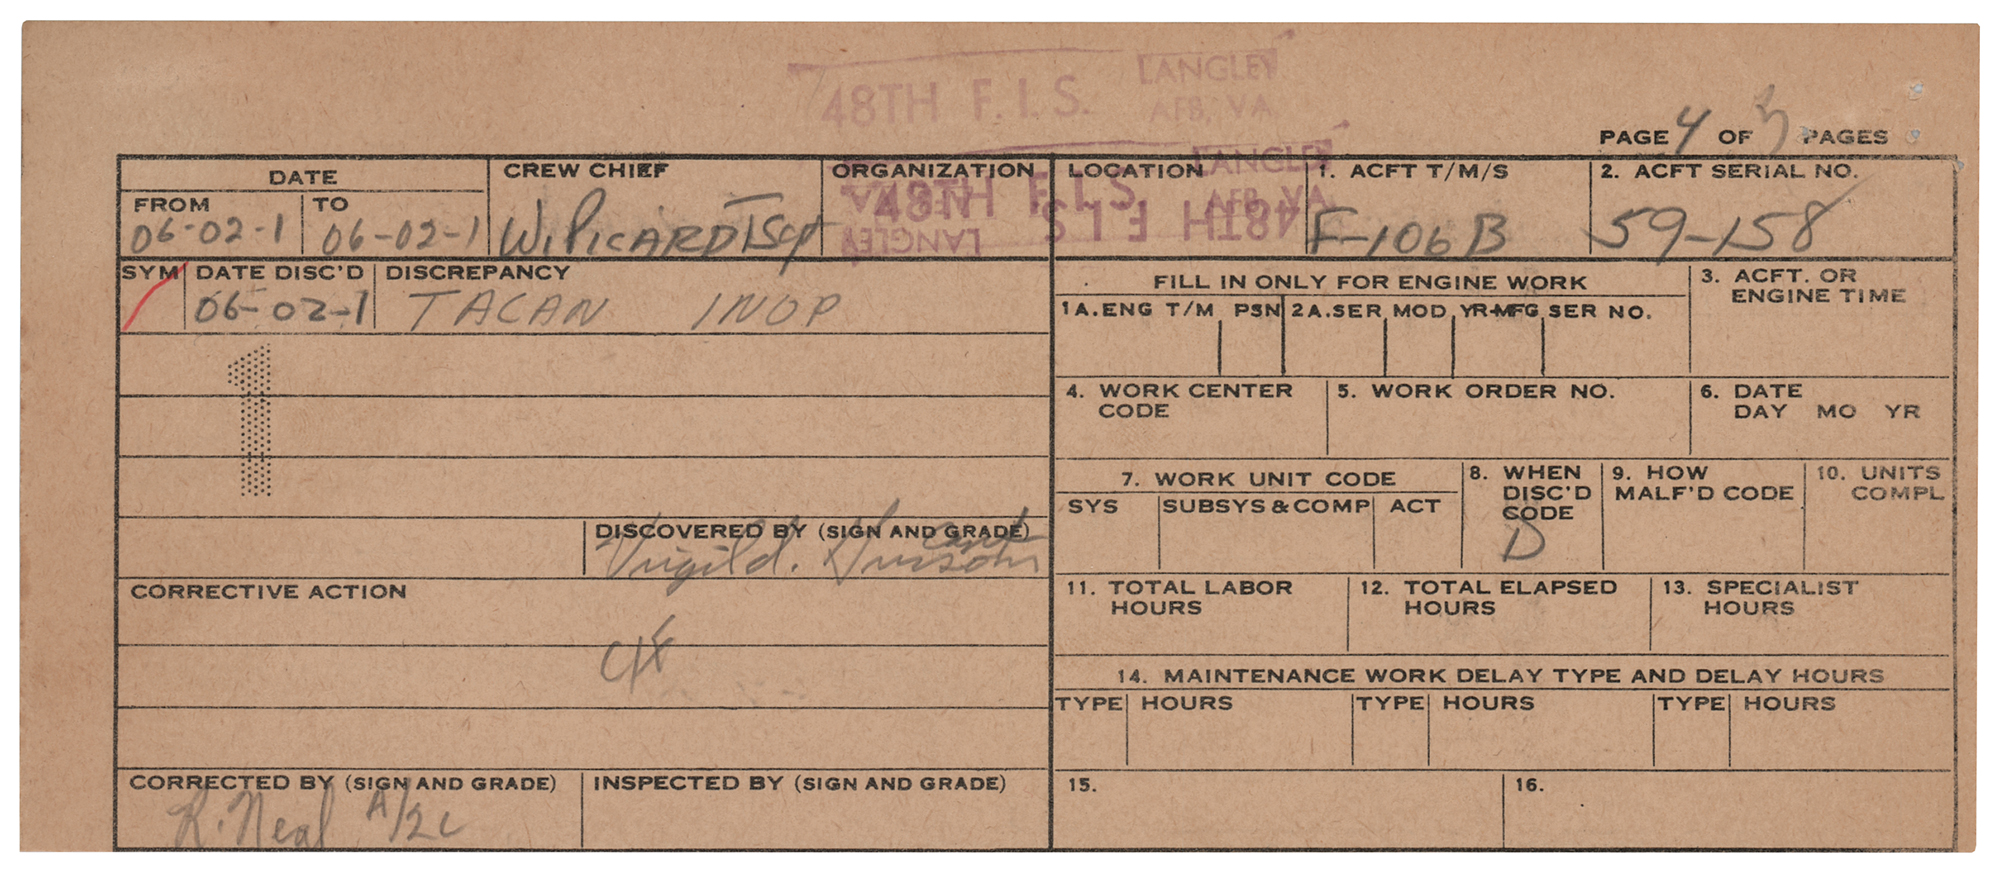 48TH F.I.S. LANGLEY
AFB, VA
PAGE 4 OF PAGES
DATE
FROM TO
06-02-1 06-02-1
CREW CHIEF
W. PICARD TSgt
ORGANIZATION
LOCATION
48TH F.I.S. LANGLEY
AFB, VA
48TH F.I.S LANGLEY
AFB, VA
1. ACFT T/M/S
F-106B
2. ACFT SERIAL NO.
59-158
SYM DATE DISC'D DISCREPANCY
/ 06-02-1 TACAN INOP
1
DISCOVERED BY (SIGN AND GRADE)
Virgil
CORRECTIVE ACTION
CORRECTED BY (SIGN AND GRADE) INSPECTED BY (SIGN AND GRADE)
R. Neal A/2C
FILL IN ONLY FOR ENGINE WORK
1A. ENG T/M PSN 2A. SER MOD YR-MFG SER NO.
3. ACFT. OR
ENGINE TIME
4. WORK CENTER
CODE
5. WORK ORDER NO.
6. DATE
DAY MO YR
7. WORK UNIT CODE
SYS SUBSYS & COMP ACT
8. WHEN
DISC'D
CODE
D
9. HOW
MALF'D CODE
10. UNITS
COMPL
11. TOTAL LABOR
HOURS
12. TOTAL ELAPSED
HOURS
13. SPECIALIST
HOURS
14. MAINTENANCE WORK DELAY TYPE AND DELAY HOURS
TYPE HOURS TYPE HOURS TYPE HOURS
15. 16.